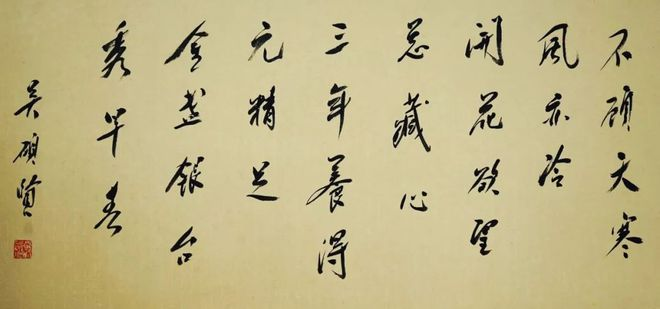 不顾天寒
風亦冷
開花欲望
总藏心
三年養得
元精足
金盏银台
秀早春
吴硕贤